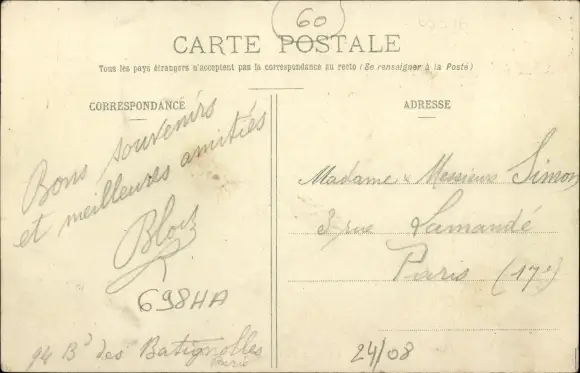 60
CARTE POSTALE
Tous les pays étrangers n'acceptent pas la correspondance au recto (Se renseigner à la Poste)
CORRESPONDANCE
Bons souvenirs
et meilleures amitiés
698HA
94 Bd des Batignolles
Paris
ADRESSE
Madame & Messieurs Simon
3, rue Lamandé
Paris (17e)
24/08